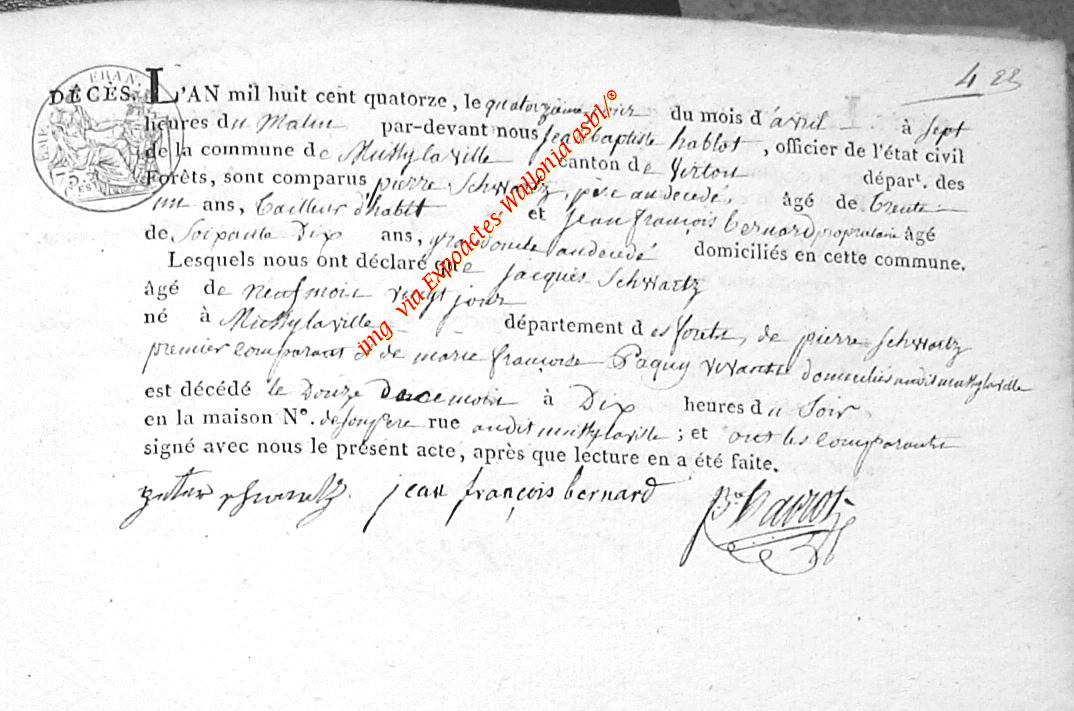 4 23
DÉCÈS. L'AN mil huit cent quatorze, le quatorzieme jour du mois d'avril à sept
heures du Matin par-devant nous jean baptiste hablot, officier de l'état civil
de la commune de Mussy la ville canton de Virton départ. des
Forêts, sont comparus pierre Schwartz, père au decedé, âgé de trente
un ans, tailleur d'habit et jean françois bernard propriétaire âgé
de Soixante Dix ans, domiciliés en cette commune.
Lesquels nous ont déclaré que jacques Schwartz
âgé de neuf mois vingt jour
né à Mussy la ville département des forets, de pierre Schwartz
premier comparant & de marie françoise Paquy vivante domiciliés audit mussy la ville
est décédé le Douze de ce mois à Dix heures du Soir
en la maison N°. rue audit mussy la ville ; et ont les comparants
signé avec nous le présent acte, après que lecture en a été faite.
jean françois bernard
img via Expoactes-Wallonia asbl/®